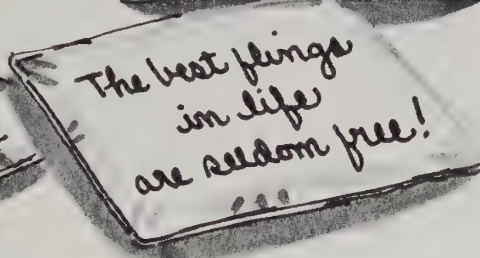 The best flings
in life
are seldom free!